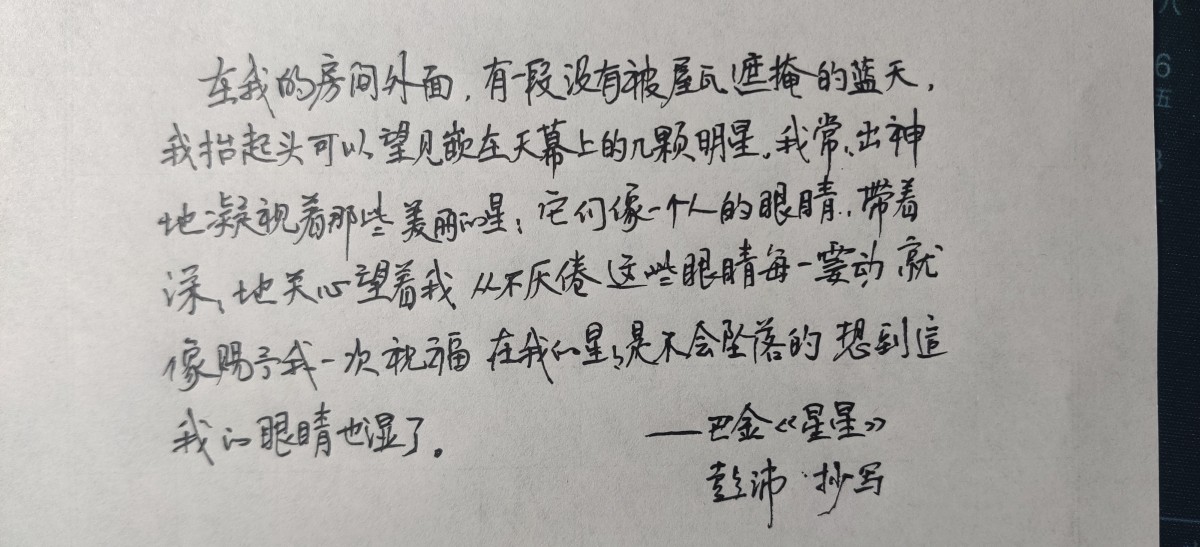 在我的房间外面，有一段没有被屋瓦遮掩的蓝天，
我抬起头可以望见嵌在天幕上的几颗明星。我常、出神
地凝视着那些美丽的星；它们像一个人的眼睛，带着
深、地关心望着我 从不厌倦 这些眼睛每一霎动 就
像赐予我一次祝福 在我的星、是不会坠落的 想到這
我的眼睛也湿了。
——巴金《星星》
彭沛 抄写
八
6
五